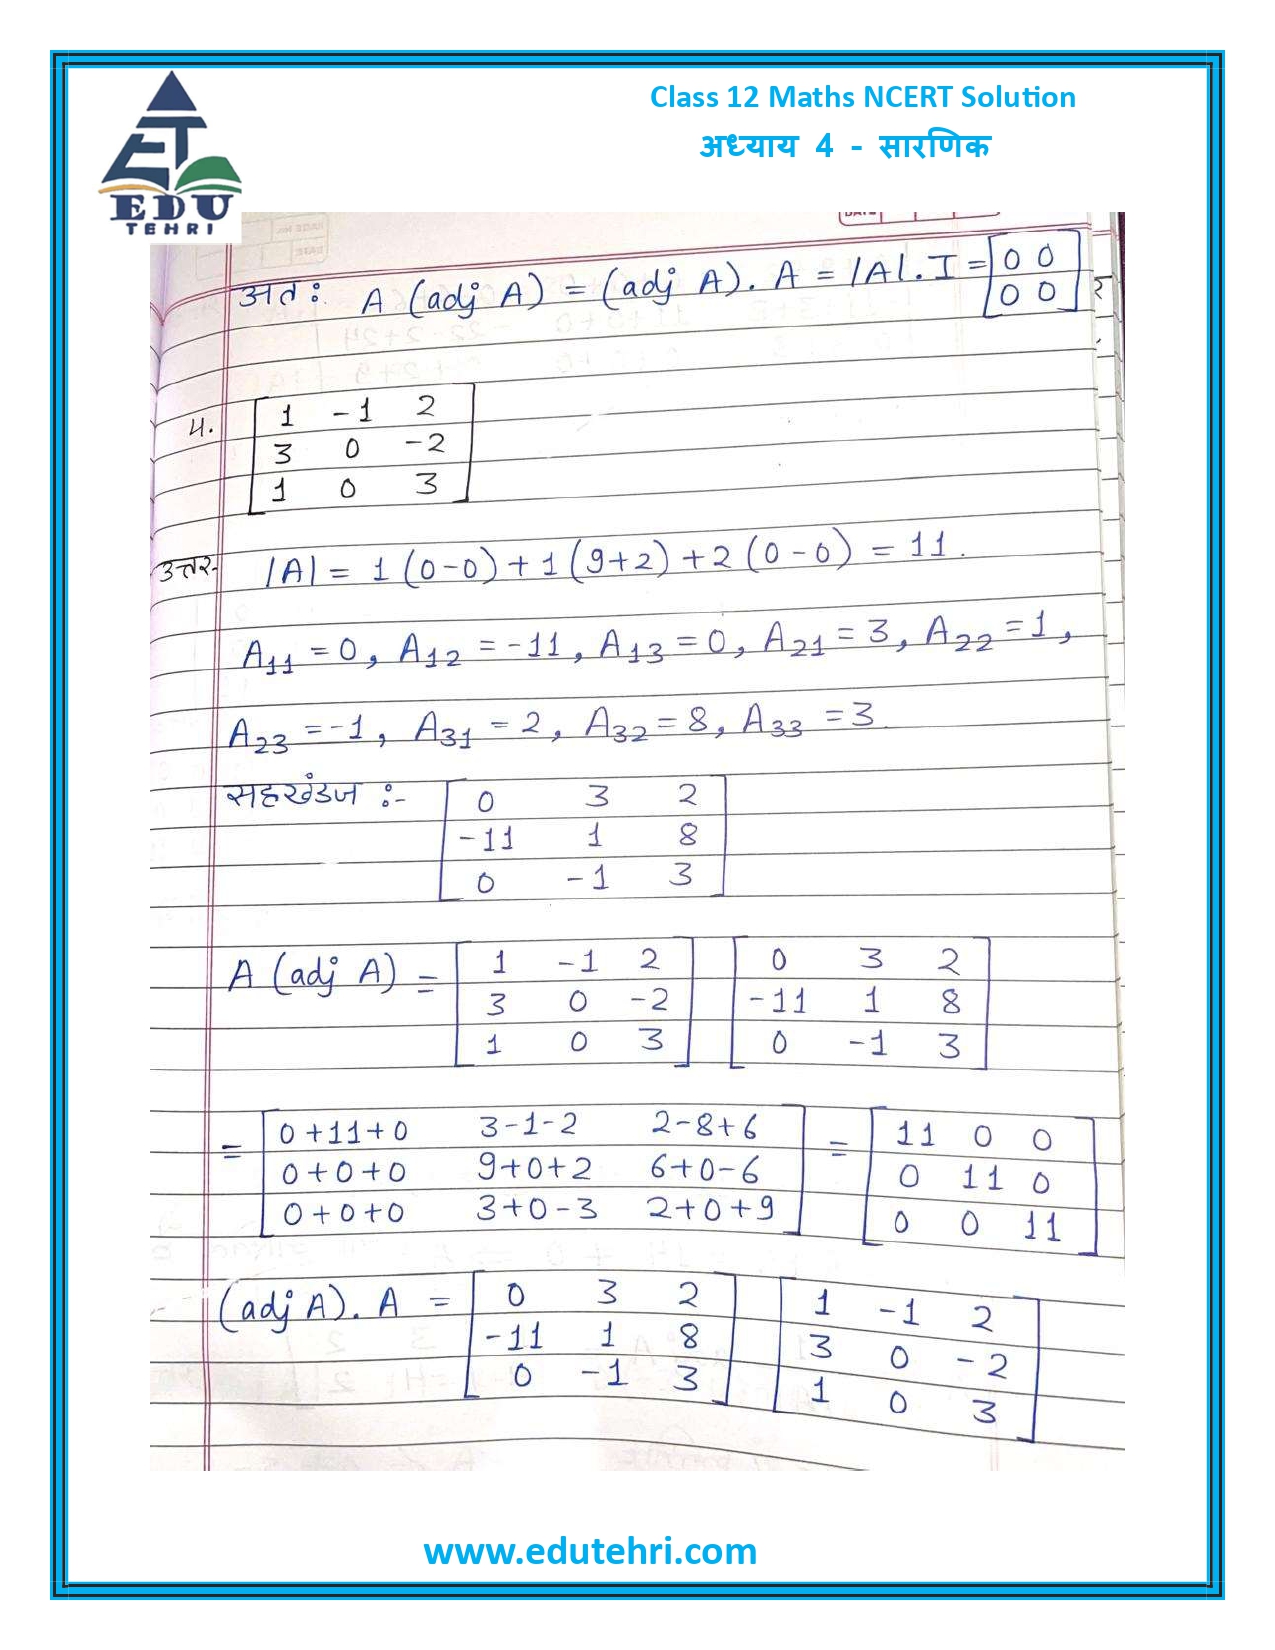 EDU
TEHRI
Class 12 Maths NCERT Solution
अध्याय 4 - सारणिक
अतः A (adj A) = (adj A). A = |A|. I = [0 0
0 0]
4. [1 -1 2
3 0 -2
1 0 3]
उत्तर- |A| = 1 (0-0) + 1 (9+2) + 2 (0-0) = 11.
A11 = 0, A12 = -11, A13 = 0, A21 = 3, A22 = 1,
A23 = -1, A31 = 2, A32 = 8, A33 = 3.
सहखंडज :- [0 3 2
-11 1 8
0 -1 3]
A (adj A) = [1 -1 2 0 3 2
3 0 -2 -11 1 8
1 0 3] 0 -1 3]
= [0+11+0 3-1-2 2-8+6 = [11 0 0
0+0+0 9+0+2 6+0-6 0 11 0
0+0+0 3+0-3 2+0+9] 0 0 11]
(adj A). A = [0 3 2 1 -1 2
-11 1 8 3 0 -2
0 -1 3] 1 0 3]
www.edutehri.com